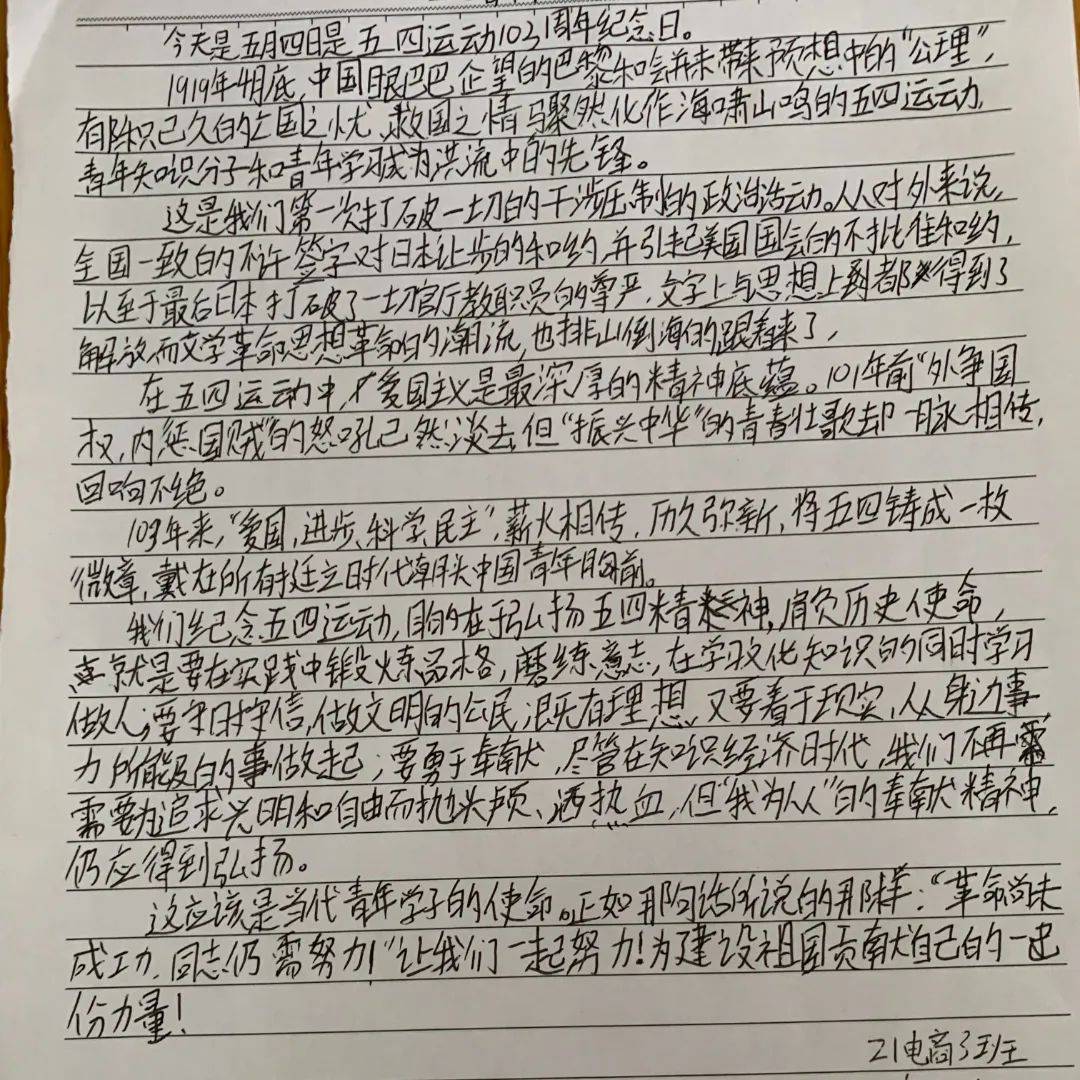 今天是五月四日是五四运动103周年纪念日。
1919年4月底,中国眼巴巴企望的巴黎和会并未带来预想中的“公理”,
有陈积已久的亡国之忧、救国之情骤然化作海啸山鸣的五四运动,
青年知识分子和青年学习成为洪流中的先锋。
这是我们第一次打破一切的干涉压制的政治活动。从对外来说,
全国一致的不许签字对日本让步的和约,并引起美国国会的不批准和约,
以至于最后日本打破了一切官厅教职员的尊严,文字上与思想上都得到了
解放而文学革命思想革命的潮流,也排山倒海的跟着来了,
在五四运动中,爱国主义是最深厚的精神底蕴。101年前“外争国
权,内惩国贼”的怒吼已然淡去,但“振兴中华”的青春壮歌却一脉相传,
回响不绝。
103年来,“爱国,进步、科学、民主”,薪火相传,历久弥新,将五四铸成一枚
徽章,戴在所有挺立时代潮头中国青年胸前。
我们纪念五四运动,目的在于弘扬五四精神,肩负历史使命,
就是要在实践中锻炼品格,磨练意志,在学习文化知识的同时学习
做人;要守时守信,做文明的公民,既有理想,又要着于现实,从身边事
力所能及的事做起;要勇于奉献,尽管在知识经济时代,我们不再
需要为追求光明和自由而抛头颅、洒热血,但“我为人人”的奉献精神,
仍应得到弘扬。
这应该是当代青年学子的使命。正如那句话所说的那样:“革命尚未
成功,同志仍需努力!”让我们一起努力!为建设祖国贡献自己的一
份力量!
21电商3班